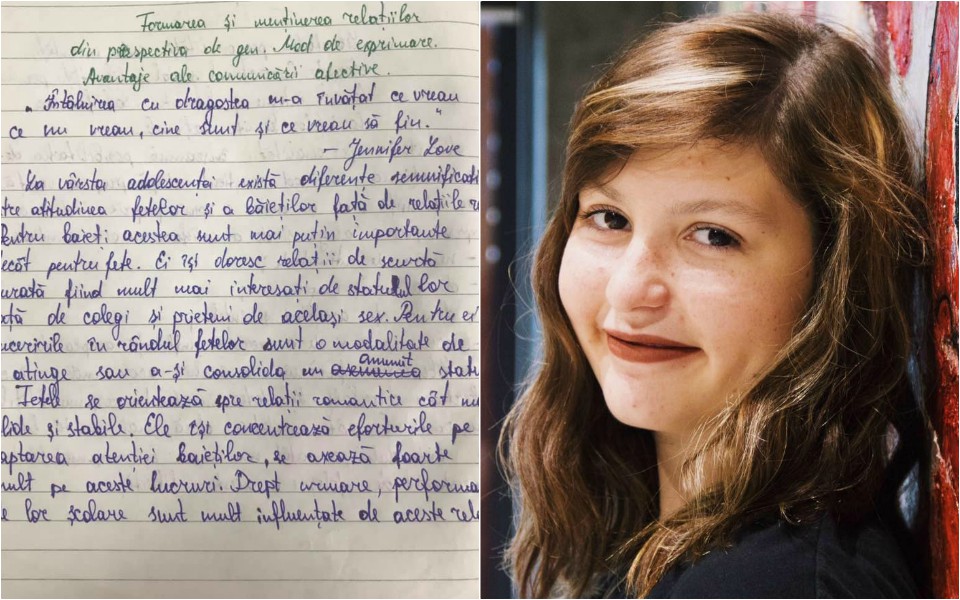 Formarea și menținerea relațiilor
din perspectiva de gen. Mod de exprimare.
Avantaje ale comunicării afective.
„Întâlnirea cu dragostea m-a învățat ce vreau
ce nu vreau, cine sunt și ce vreau să fiu."
– Jennifer Love
La vârsta adolescenței există diferențe semnificati
tre atitudinea fetelor și a băieților față de relațiile r
Pentru baieți acestea sunt mai puțin importante
ecât pentru fete. Ei își doresc relații de scurtă
urată fiind mult mai interesați de statutul lor
ață de colegi și prieteni de același sex. Pentru ei
uceririle în rândul fetelor sunt o modalitate de
atinge sau a-și consolida un anumit statu
Fetele se orientează spre relații romantice cât m
lide și stabile. Ele își concentrează eforturile pe
aptarea atenției baieților, se axează foarte
mult pe aceste lucruri. Drept urmare, performa
e lor școlare sunt mult influențate de aceste rel